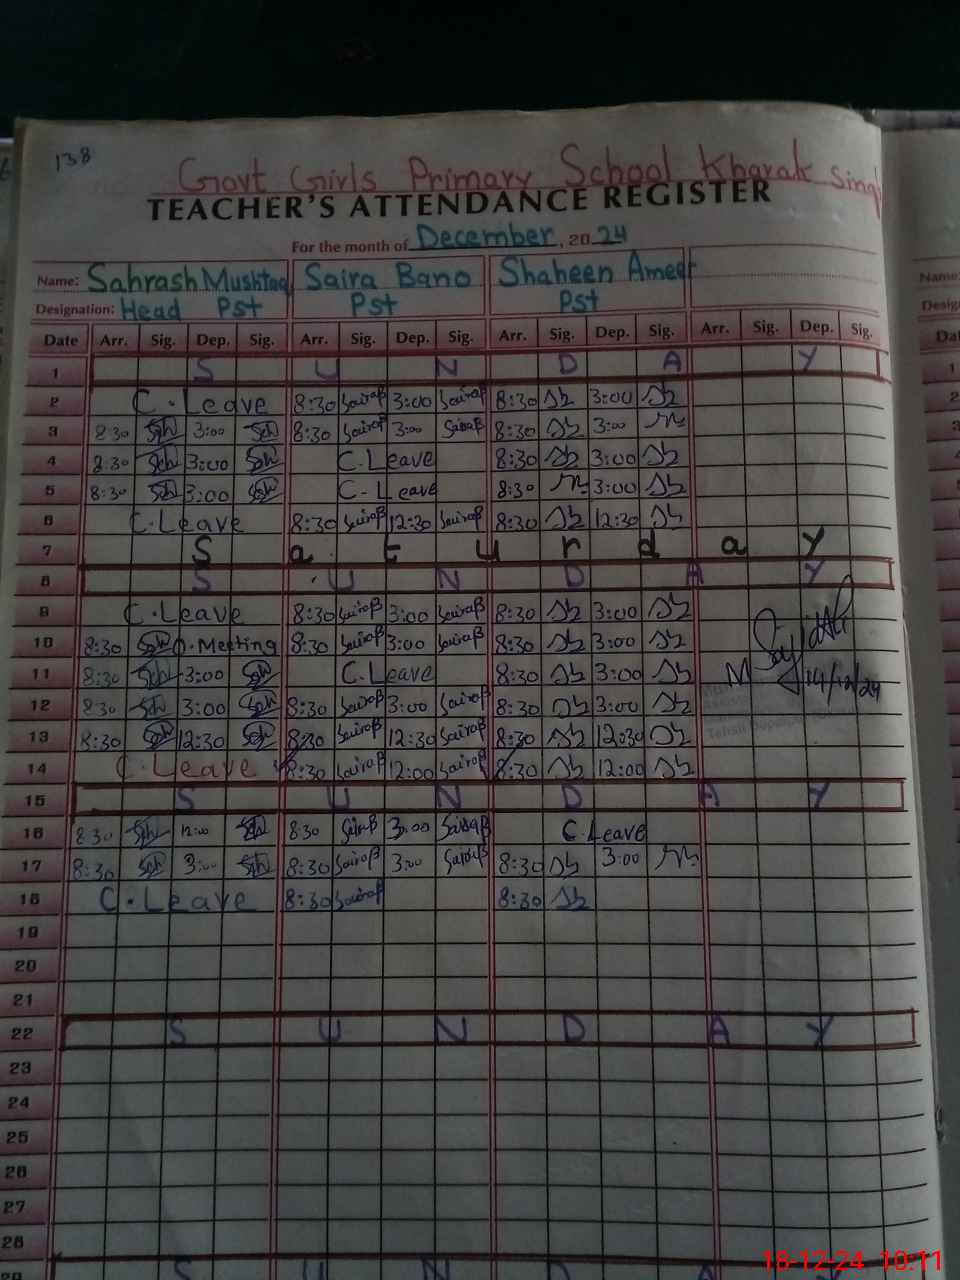 138
Govt Girls Primary School Kharak Singh
TEACHER'S ATTENDANCE REGISTER
For the month of December, 2024
Name: Sahrash Mushtaq Saira Bano Shaheen Ameer Name:
Designation: Head Pst Pst Pst
Date Arr. Sig. Dep. Sig. Arr. Sig. Dep. Sig. Arr. Sig. Dep. Sig. Arr. Sig. Dep. Sig.
1 S U N D A Y
2 C.Leave 8:30 SairaB 3:00 SairaB 8:30 3:00
3 8:30 3:00 8:30 SairaB 3:00 SairaB 8:30 3:00
4 8:30 3:00 C.Leave 8:30 3:00
5 8:30 3:00 C-Leave 8:30 3:00
6 C.Leave 8:30 SairaB 12:30 SairaB 8:30 12:30
7 S a t u r d a y
8 S U N D A Y
9 C.Leave 8:30 SairaB 3:00 SairaB 8:30 3:00
10 8:30 O.Meeting 8:30 SairaB 3:00 SairaB 8:30 3:00
11 8:30 3:00 C.Leave 8:30 3:00
12 8:30 3:00 8:30 SairaB 3:00 SairaB 8:30 3:00
13 8:30 12:30 8:30 SairaB 12:30 SairaB 8:30 12:30
14 C.Leave 8:30 SairaB 12:00 SairaB 8:30 12:00
14/12/24
15 S U N D A Y
16 8:30 12:00 8:30 SairaB 3:00 SairaB C.Leave
17 8:30 3:00 8:30 SairaB 3:00 SairaB 8:30 3:00
18 C.Leave 8:30 SairaB 8:30
19
20
21
22 S U N D A Y
23
24
25
26
27
28
29 S U N D A
18-12-24 10:11